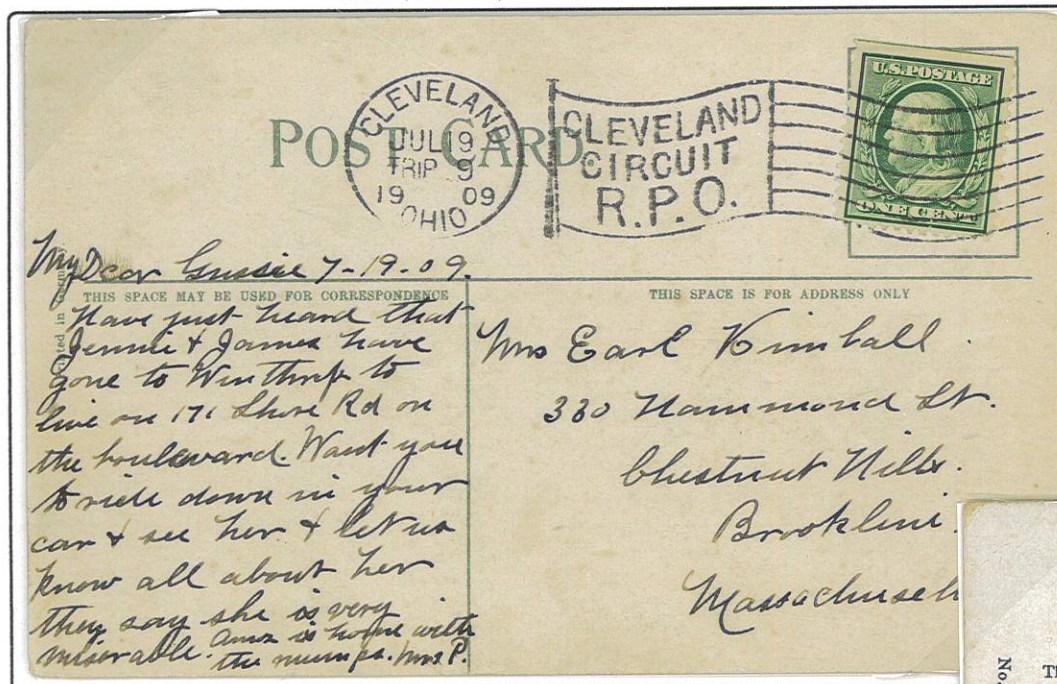 POST CARD
CLEVELAND
JUL 19
TRIP 9
19 09
OHIO
CLEVELAND
CIRCUIT
R.P.O.
U.S. POSTAGE
ONE CENT
My Dear Gussie 7-19-09.
THIS SPACE MAY BE USED FOR CORRESPONDENCE
Have just heard that
Jennie & James have
gone to Winthrop to
live on 171 Shore Rd on
the boulevard. Want you
to ride down in your
car & see her & let us
know all about her
they say she is very
miserable. is home with
the mumps. Mrs P.
THIS SPACE IS FOR ADDRESS ONLY
Mrs Earl Kimball.
330 Hammond St.
Chestnut Hills.
Brookline.
Massachuset
No.
Th